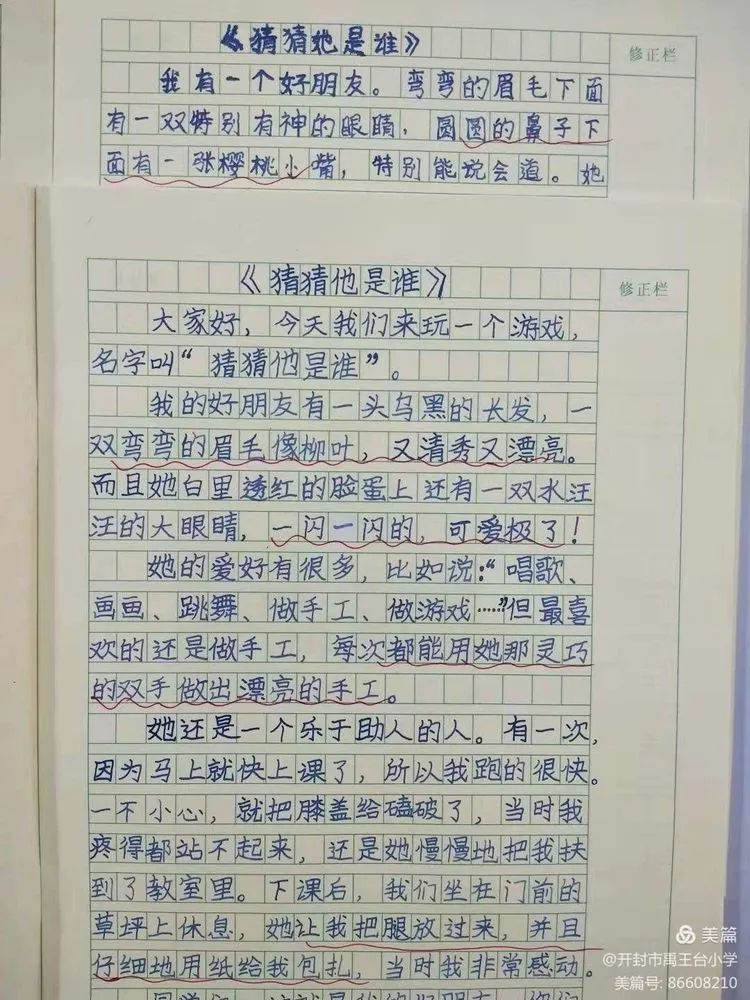 《猜猜她是谁》
修正栏
我有一个好朋友。弯弯的眉毛下面
有一双特别有神的眼睛，圆圆的鼻子下
面有一张樱桃小嘴，特别能说会道。她
《猜猜他是谁》
修正栏
大家好，今天我们来玩一个游戏，
名字叫“猜猜他是谁”。
我的好朋友有一头乌黑的长发，一
双弯弯的眉毛像柳叶，又清秀又漂亮。
而且她白里透红的脸蛋上还有一双水汪
汪的大眼睛，一闪一闪的，可爱极了！
她的爱好有很多，比如说：“唱歌、
画画、跳舞、做手工、做游戏……”但最喜
欢的还是做手工，每次都能用她那灵巧
的双手做出漂亮的手工。
她还是一个乐于助人的人。有一次，
因为马上就快上课了，所以我跑的很快。
一不小心，就把膝盖给磕破了，当时我
疼得都站不起来，还是她慢慢地把我扶
到了教室里。下课后，我们坐在门前的
草坪上休息，她让我把腿放过来，并且
仔细地用纸给我包扎，当时我非常感动。
美篇
@开封市禹王台小学
美篇号：86608210